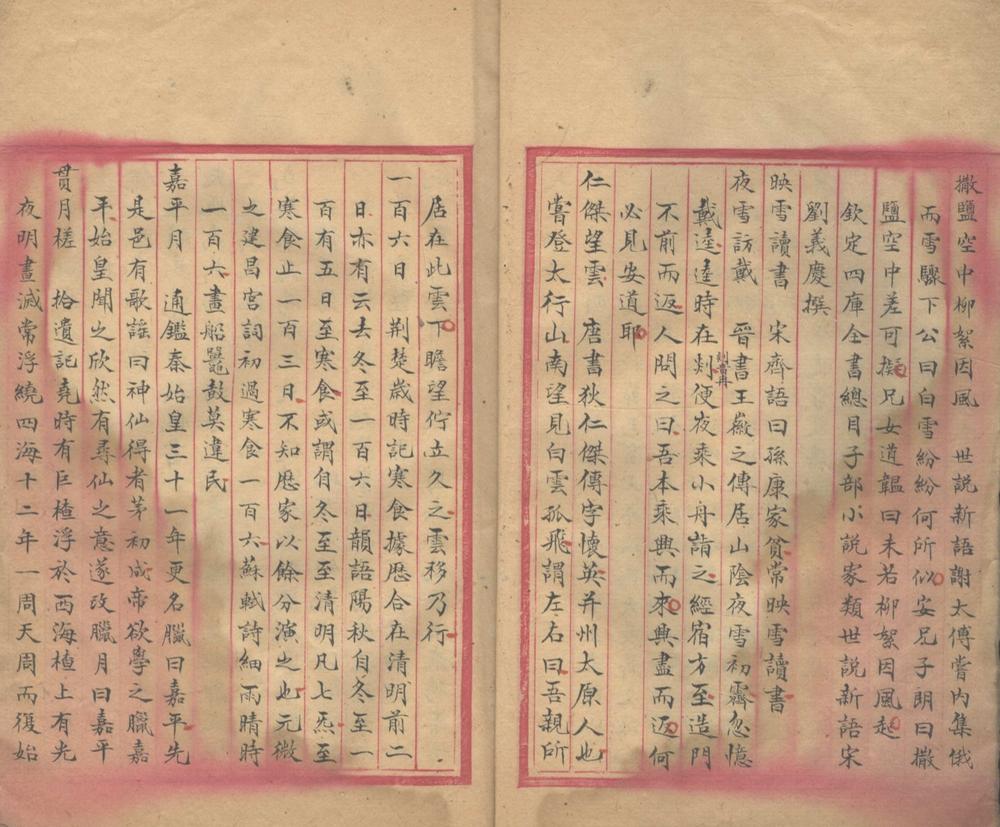 撒鹽空中柳絮因風　世説新語謝太傅嘗内集俄
而雪驟下公曰白雪紛紛何所似安兄子朗曰撒
鹽空中差可擬兄女道韞曰未若柳絮因風起
欽定四庫全書總目子部小説家類世説新語宋
劉義慶撰
映雪讀書　宋齊語曰孫康家貧常映雪讀書
夜雪訪戴　晉書王徽之傳居山陰夜雪初霽忽憶
戴逵逵時在剡便夜乘小舟詣之經宿方至造門
不前而返人問之曰吾本乘興而來興盡而返何
必見安道耶
仁傑望雲　唐書狄仁傑傳字懷英并州太原人也
嘗登太行山南望見白雲孤飛謂左右曰吾親所
居在此雲下瞻望佇立久之雲移乃行
一百六日　荆楚歲時記寒食據歷合在清明前二
日亦有云去冬至一百六日韻語陽秋自冬至一
百有五日至寒食或謂自冬至至清明凡七炁至
寒食止一百三日不知歷家以餘分演之也元微
之建昌宫詞初過寒食一百六蘇軾詩細雨晴時
一百六畫船鼉鼓莫違民
嘉平月　通鑑秦始皇三十一年更名臘曰嘉平先
是邑有歌謡曰神仙得者茅初成帝欲學之臘嘉
平始皇聞之欣然有尋仙之意遂改臘月曰嘉平
貫月槎　拾遺記堯時有巨楂浮於西海楂上有光
夜明晝滅常浮繞四海十二年一周天周而復始